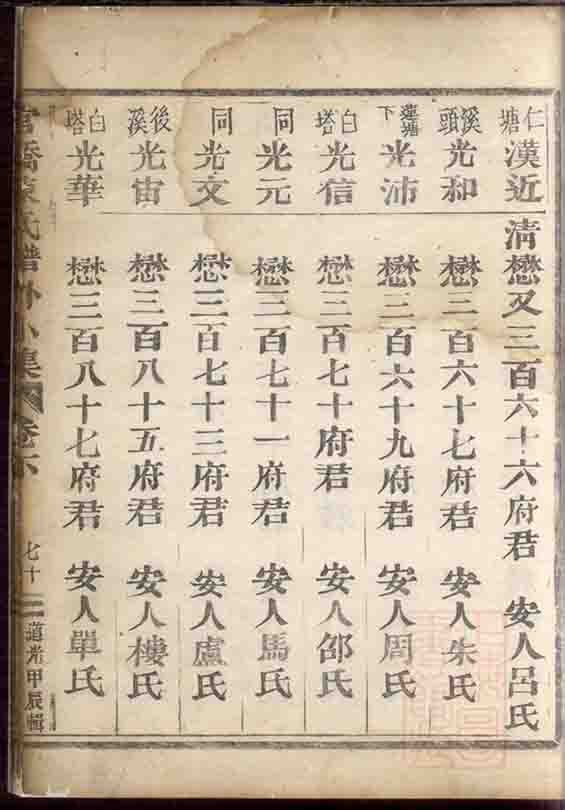 仁塘 漢近 清懋又三百六十六府君 安人呂氏
溪頭 光和 懋三百六十七府君 安人朱氏
下 光沛 懋三百六十九府君 安人周氏
白塔 光信 懋三百七十府君 安人邵氏
同 光元 懋三百七十一府君 安人馬氏
同 光文 懋三百七十三府君 安人盧氏
後溪 光宙 懋三百八十五府君 安人樓氏
白塔 光華 懋三百八十七府君 安人單氏
氏譜外小集 卷下 七十 道光甲辰輯